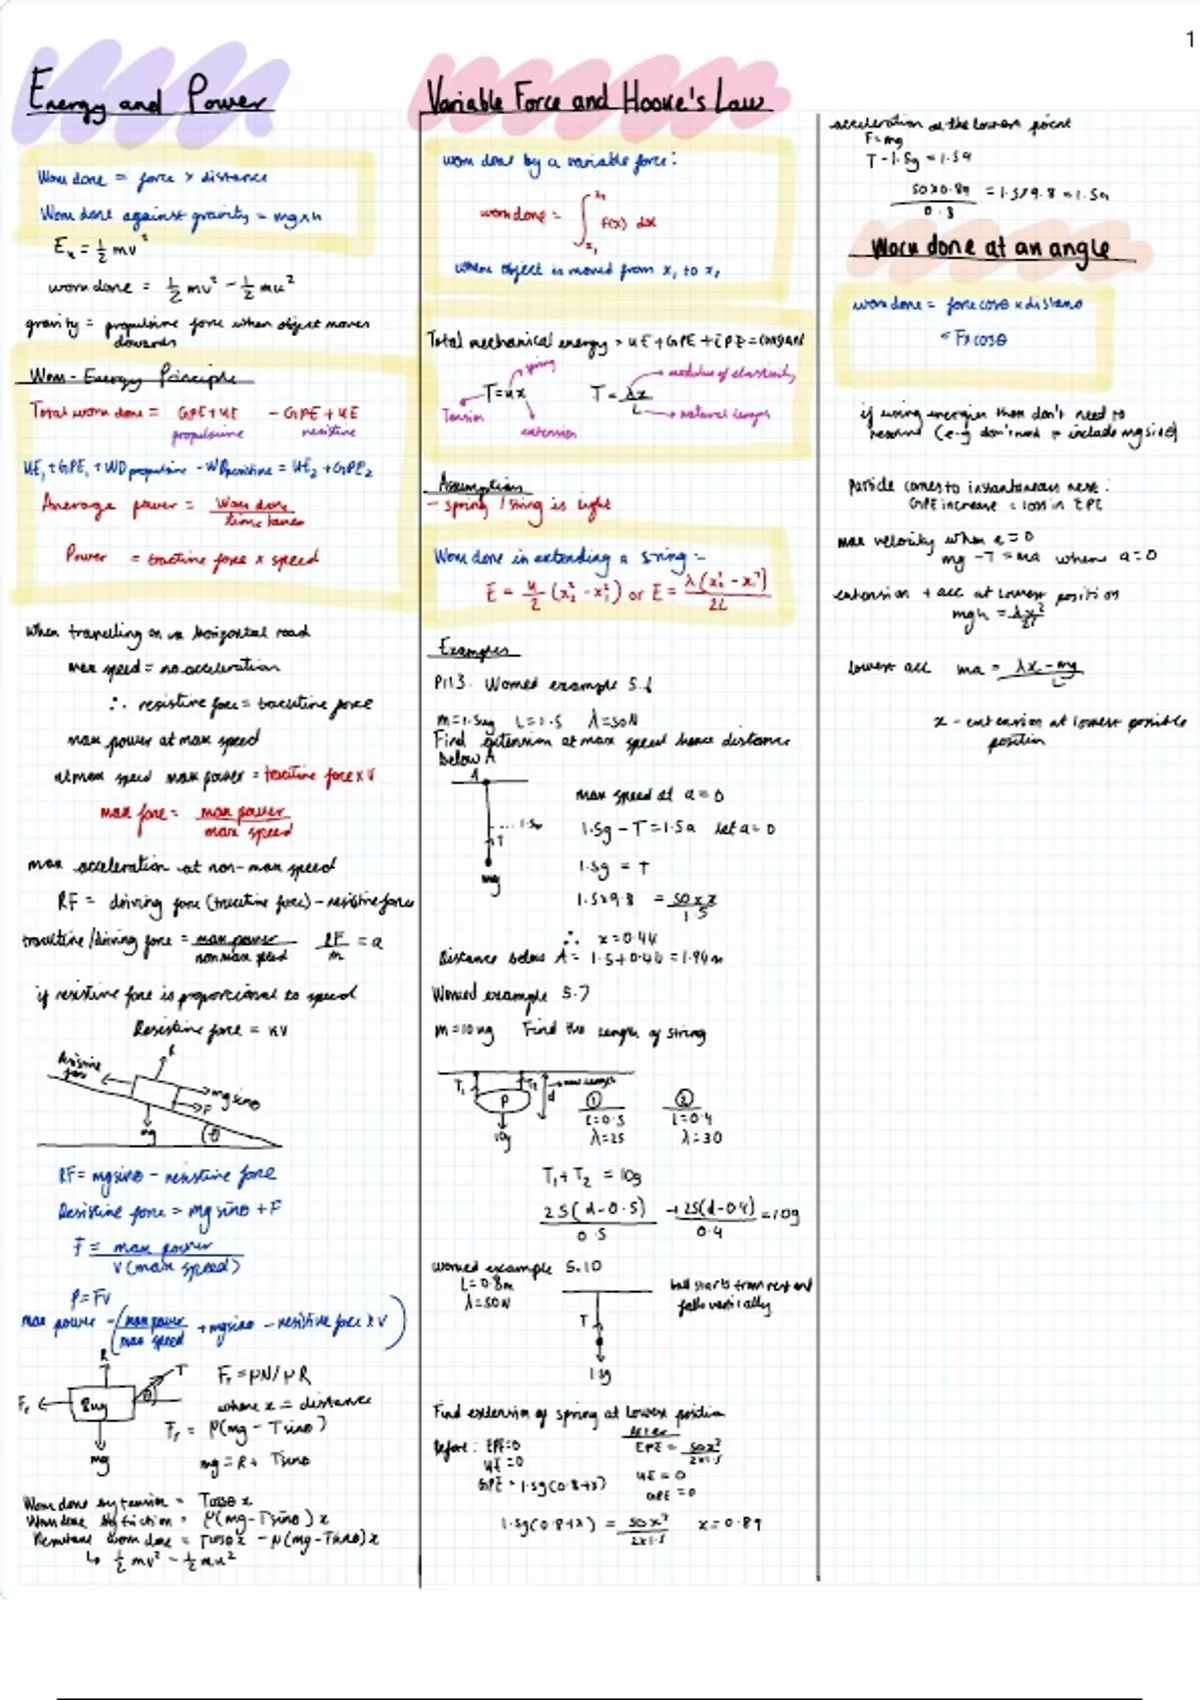 1
Energy and Power
Work done = force × distance
Work done against gravity = mg×h
Ek = 1/2 mv²
work done = 1/2 mv² - 1/2 mu²
gravity = propulsive force when object moves
downwards
Work-Energy Principle
Total work done = GPE+KE - GPE+KE
propulsive resistive
KE₁+GPE₁+WD propulsive - WD resistive = KE₂+GPE₂
Average power = Work done / time taken
Power = tractive force × speed
when travelling on a horizontal road
max speed = no acceleration
∴ resistive force = tractive force
max power at max speed
at max speed max power = tractive force × v
max force = max power / max speed
max acceleration at non-max speed
RF = driving force (tractive force) - resistive force
tractive/driving force = max power / non max speed RF/m = a
if resistive force is proportional to speed
Resistive force = kv
Resistive force
R
mgsinθ
F
mg
θ
RF = mgsinθ - resistive force
Resistive force = mgsinθ + F
F = max power / v (max speed)
P=Fv
max power - (max power / max speed + mgsinθ - resistive force × v)
R
T
Fr
8kg
θ
mg
Fr = μN/μR
where x = distance
Fr = μ(mg - Tsinθ)
mg = R + Tsinθ
Work done by tension = Tcosθ x
Work done by friction = μ(mg-Tsinθ) x
Resultant work done = Tcosθx - μ(mg-Tsinθ)x
↳ 1/2 mv² - 1/2 mu²
Variable Force and Hooke's Law
work done by a variable force:
work done = ∫ F(x) dx
x₂
x₁
where object is moved from x₁ to x₂
Total mechanical energy = KE+GPE+EPE = constant
spring
modulus of elasticity
T=kx T = λx / L
Tension
extension
natural length
Assumptions
- spring / string is light
Work done in extending a string:-
E = k/2 (x₂² - x₁²) or E = λ(x₂² - x₁²) / 2L
Examples
P113. Worked example 5.6
m=1.5kg L=1.5 λ=50N
Find extension at max speed hence distance
below A
A
1.5m
T
mg
max speed at a=0
1.5g - T = 1.5a let a=0
1.5g = T
1.5×9.8 = 50×x / 1.5
∴ x=0.44
Distance below A = 1.5+0.44 = 1.94m
Worked example 5.7
m=10kg Find the length of string
T₁ T₂ d new length
P
10g
① ②
L=0.5 L=0.4
λ=25 λ=30
T₁+T₂ = 10g
25(d-0.5) / 0.5 + 25(d-0.4) / 0.4 = 10g
worked example 5.10
L=0.8m
λ=50N
ball starts from rest and
falls vertically
T
1.5g
Find extension of spring at lowest position
Before: EPE=0
KE=0
GPE = 1.5g(0.8+x)
After
EPE = 50x² / 2×1.5
KE=0
GPE=0
1.5g(0.8+x) = 50x² / 2×1.5 x=0.89
acceleration at the lowest point
F=mg
T-1.5g = 1.5a
50×0.89 / 0.8 = 1.5×9.8 = 1.5a
Work done at an angle
work done = forcecosθ × distance
= Fxcosθ
if using energies then don't need to
resolve (e.g don't need to include mgsinθ)
Particle comes to instantaneous rest:
GPE increase = loss in EPE
max velocity when a=0
mg - T = ma where a=0
extension + acc at lowest position
mgh = λx² / 2L
lowest acc ma = λx - mg / L
x - extension at lowest possible
position